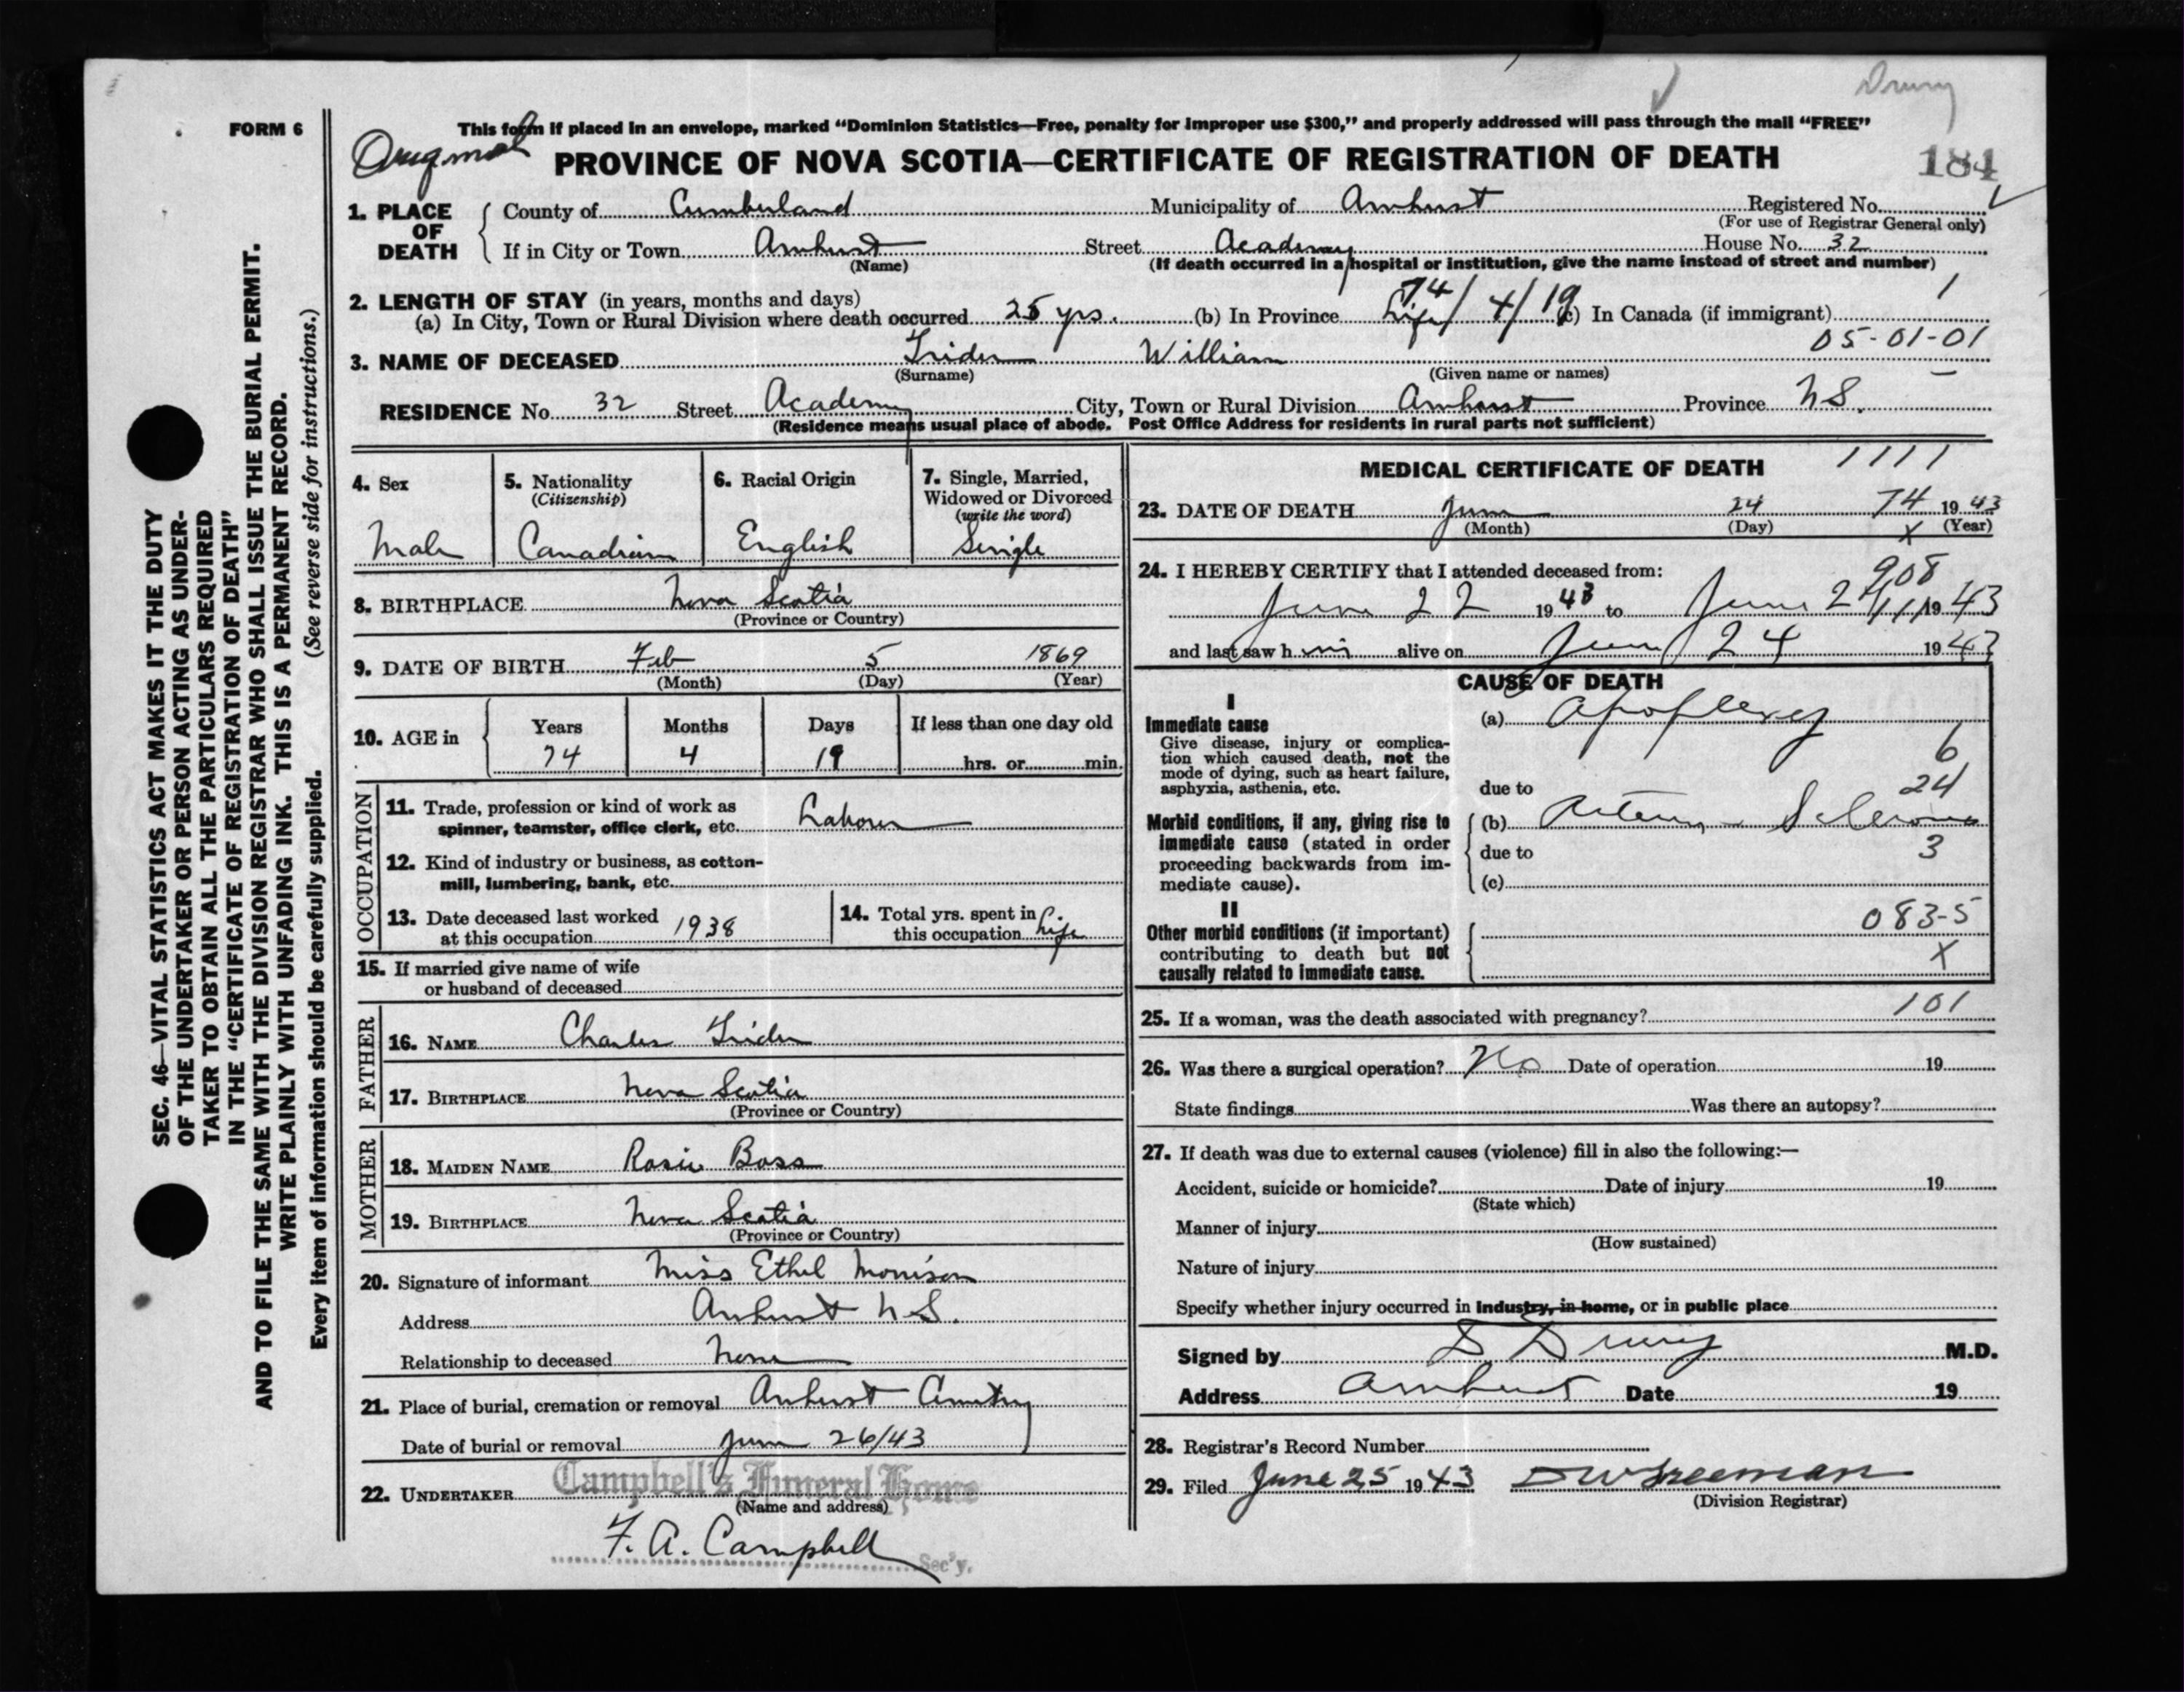 Drury
FORM 6
This form if placed in an envelope, marked "Dominion Statistics—Free, penalty for improper use $300," and properly addressed will pass through the mail "FREE"
Original
PROVINCE OF NOVA SCOTIA—CERTIFICATE OF REGISTRATION OF DEATH
184
1. PLACE OF DEATH
County of Cumberland Municipality of Amherst Registered No.
(For use of Registrar General only)
If in City or Town Amherst Street Academy House No. 32
(Name) (If death occurred in a hospital or institution, give the name instead of street and number)
2. LENGTH OF STAY (in years, months and days) 74/4/19 1
(a) In City, Town or Rural Division where death occurred 25 yrs. (b) In Province Life (c) In Canada (if immigrant)
05-01-01
3. NAME OF DECEASED Trider William
(Surname) (Given name or names)
RESIDENCE No. 32 Street Academy City, Town or Rural Division Amherst Province N.S.
(Residence means usual place of abode. Post Office Address for residents in rural parts not sufficient)
4. Sex
Male
5. Nationality
(Citizenship)
Canadian
6. Racial Origin
English
7. Single, Married,
Widowed or Divorced
(write the word)
Single
8. BIRTHPLACE Nova Scotia
(Province or Country)
9. DATE OF BIRTH Feb 5 1869
(Month) (Day) (Year)
10. AGE in Years Months Days If less than one day old
74 4 19 hrs. or min.
OCCUPATION
11. Trade, profession or kind of work as
spinner, teamster, office clerk, etc. Labourer
12. Kind of industry or business, as cotton-
mill, lumbering, bank, etc.
13. Date deceased last worked
at this occupation 1938
14. Total yrs. spent in
this occupation Life
15. If married give name of wife
or husband of deceased
FATHER
16. NAME Charles Trider
17. BIRTHPLACE Nova Scotia
(Province or Country)
MOTHER
18. MAIDEN NAME Rosie Boss
19. BIRTHPLACE Nova Scotia
(Province or Country)
20. Signature of informant Miss Ethel Morrison
Address Amherst N.S.
Relationship to deceased None
21. Place of burial, cremation or removal Amherst Cemetery
Date of burial or removal June 26/43
22. UNDERTAKER Campbell's Funeral Home
(Name and address)
F. A. Campbell
Sec'y.
MEDICAL CERTIFICATE OF DEATH 1111
23. DATE OF DEATH June 24 74 1943
(Month) (Day) X (Year)
24. I HEREBY CERTIFY that I attended deceased from:
908
June 22 1943 to June 24 1943
and last saw him alive on June 24 1943
CAUSE OF DEATH
I
Immediate cause
Give disease, injury or complica-
tion which caused death, not the
mode of dying, such as heart failure,
asphyxia, asthenia, etc.
(a) Apoplexy
6
24
due to
Morbid conditions, if any, giving rise to
immediate cause (stated in order
proceeding backwards from im-
mediate cause).
(b) Arterio - Sclerosis
due to 3
(c)
II
Other morbid conditions (if important)
contributing to death but not
causally related to immediate cause.
083-5
X
101
25. If a woman, was the death associated with pregnancy?
26. Was there a surgical operation? No Date of operation 19
State findings Was there an autopsy?
27. If death was due to external causes (violence) fill in also the following:—
Accident, suicide or homicide? Date of injury 19
(State which)
Manner of injury
(How sustained)
Nature of injury
Specify whether injury occurred in industry, in home, or in public place
Signed by D Drury M.D.
Address Amherst Date 19
28. Registrar's Record Number
29. Filed June 25 1943 DW Freeman
(Division Registrar)
SEC. 46—VITAL STATISTICS ACT MAKES IT THE DUTY
OF THE UNDERTAKER OR PERSON ACTING AS UNDER-
TAKER TO OBTAIN ALL THE PARTICULARS REQUIRED
IN THE "CERTIFICATE OF REGISTRATION OF DEATH"
AND TO FILE THE SAME WITH THE DIVISION REGISTRAR WHO SHALL ISSUE THE BURIAL PERMIT.
WRITE PLAINLY WITH UNFADING INK. THIS IS A PERMANENT RECORD.
Every item of information should be carefully supplied. (See reverse side for instructions.)